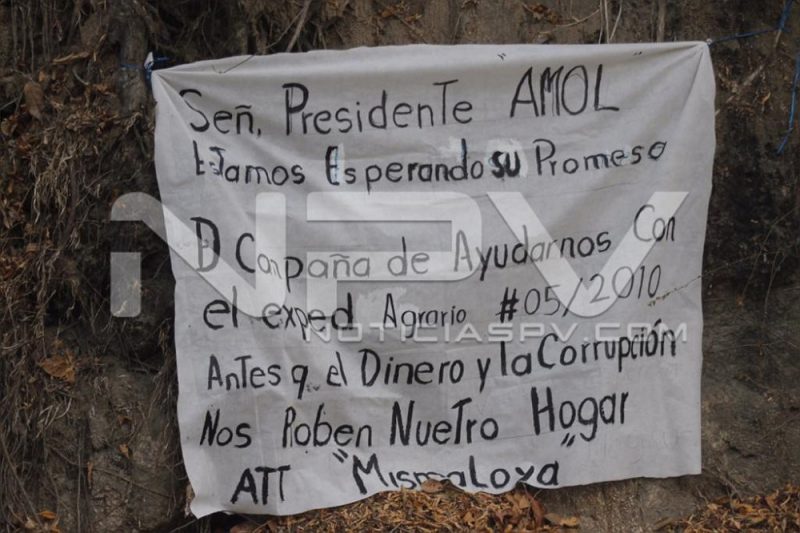 Señ, Presidente AMOL
Estamos Esperando su Promeso
D Canpaña de Ayudarnos Con
el exped Agrario #05/2010
Antes q. el Dinero y la Corrupción
Nos Roben Nuetro Hogar
ATT "Mismaloya"
NPV
NOTICIASPV.COM